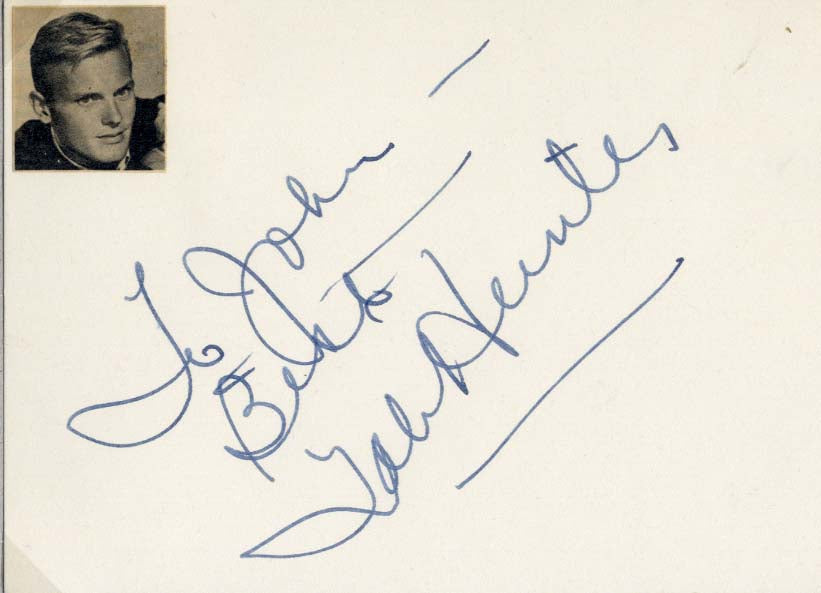 To John —
Best
Tab Hunter